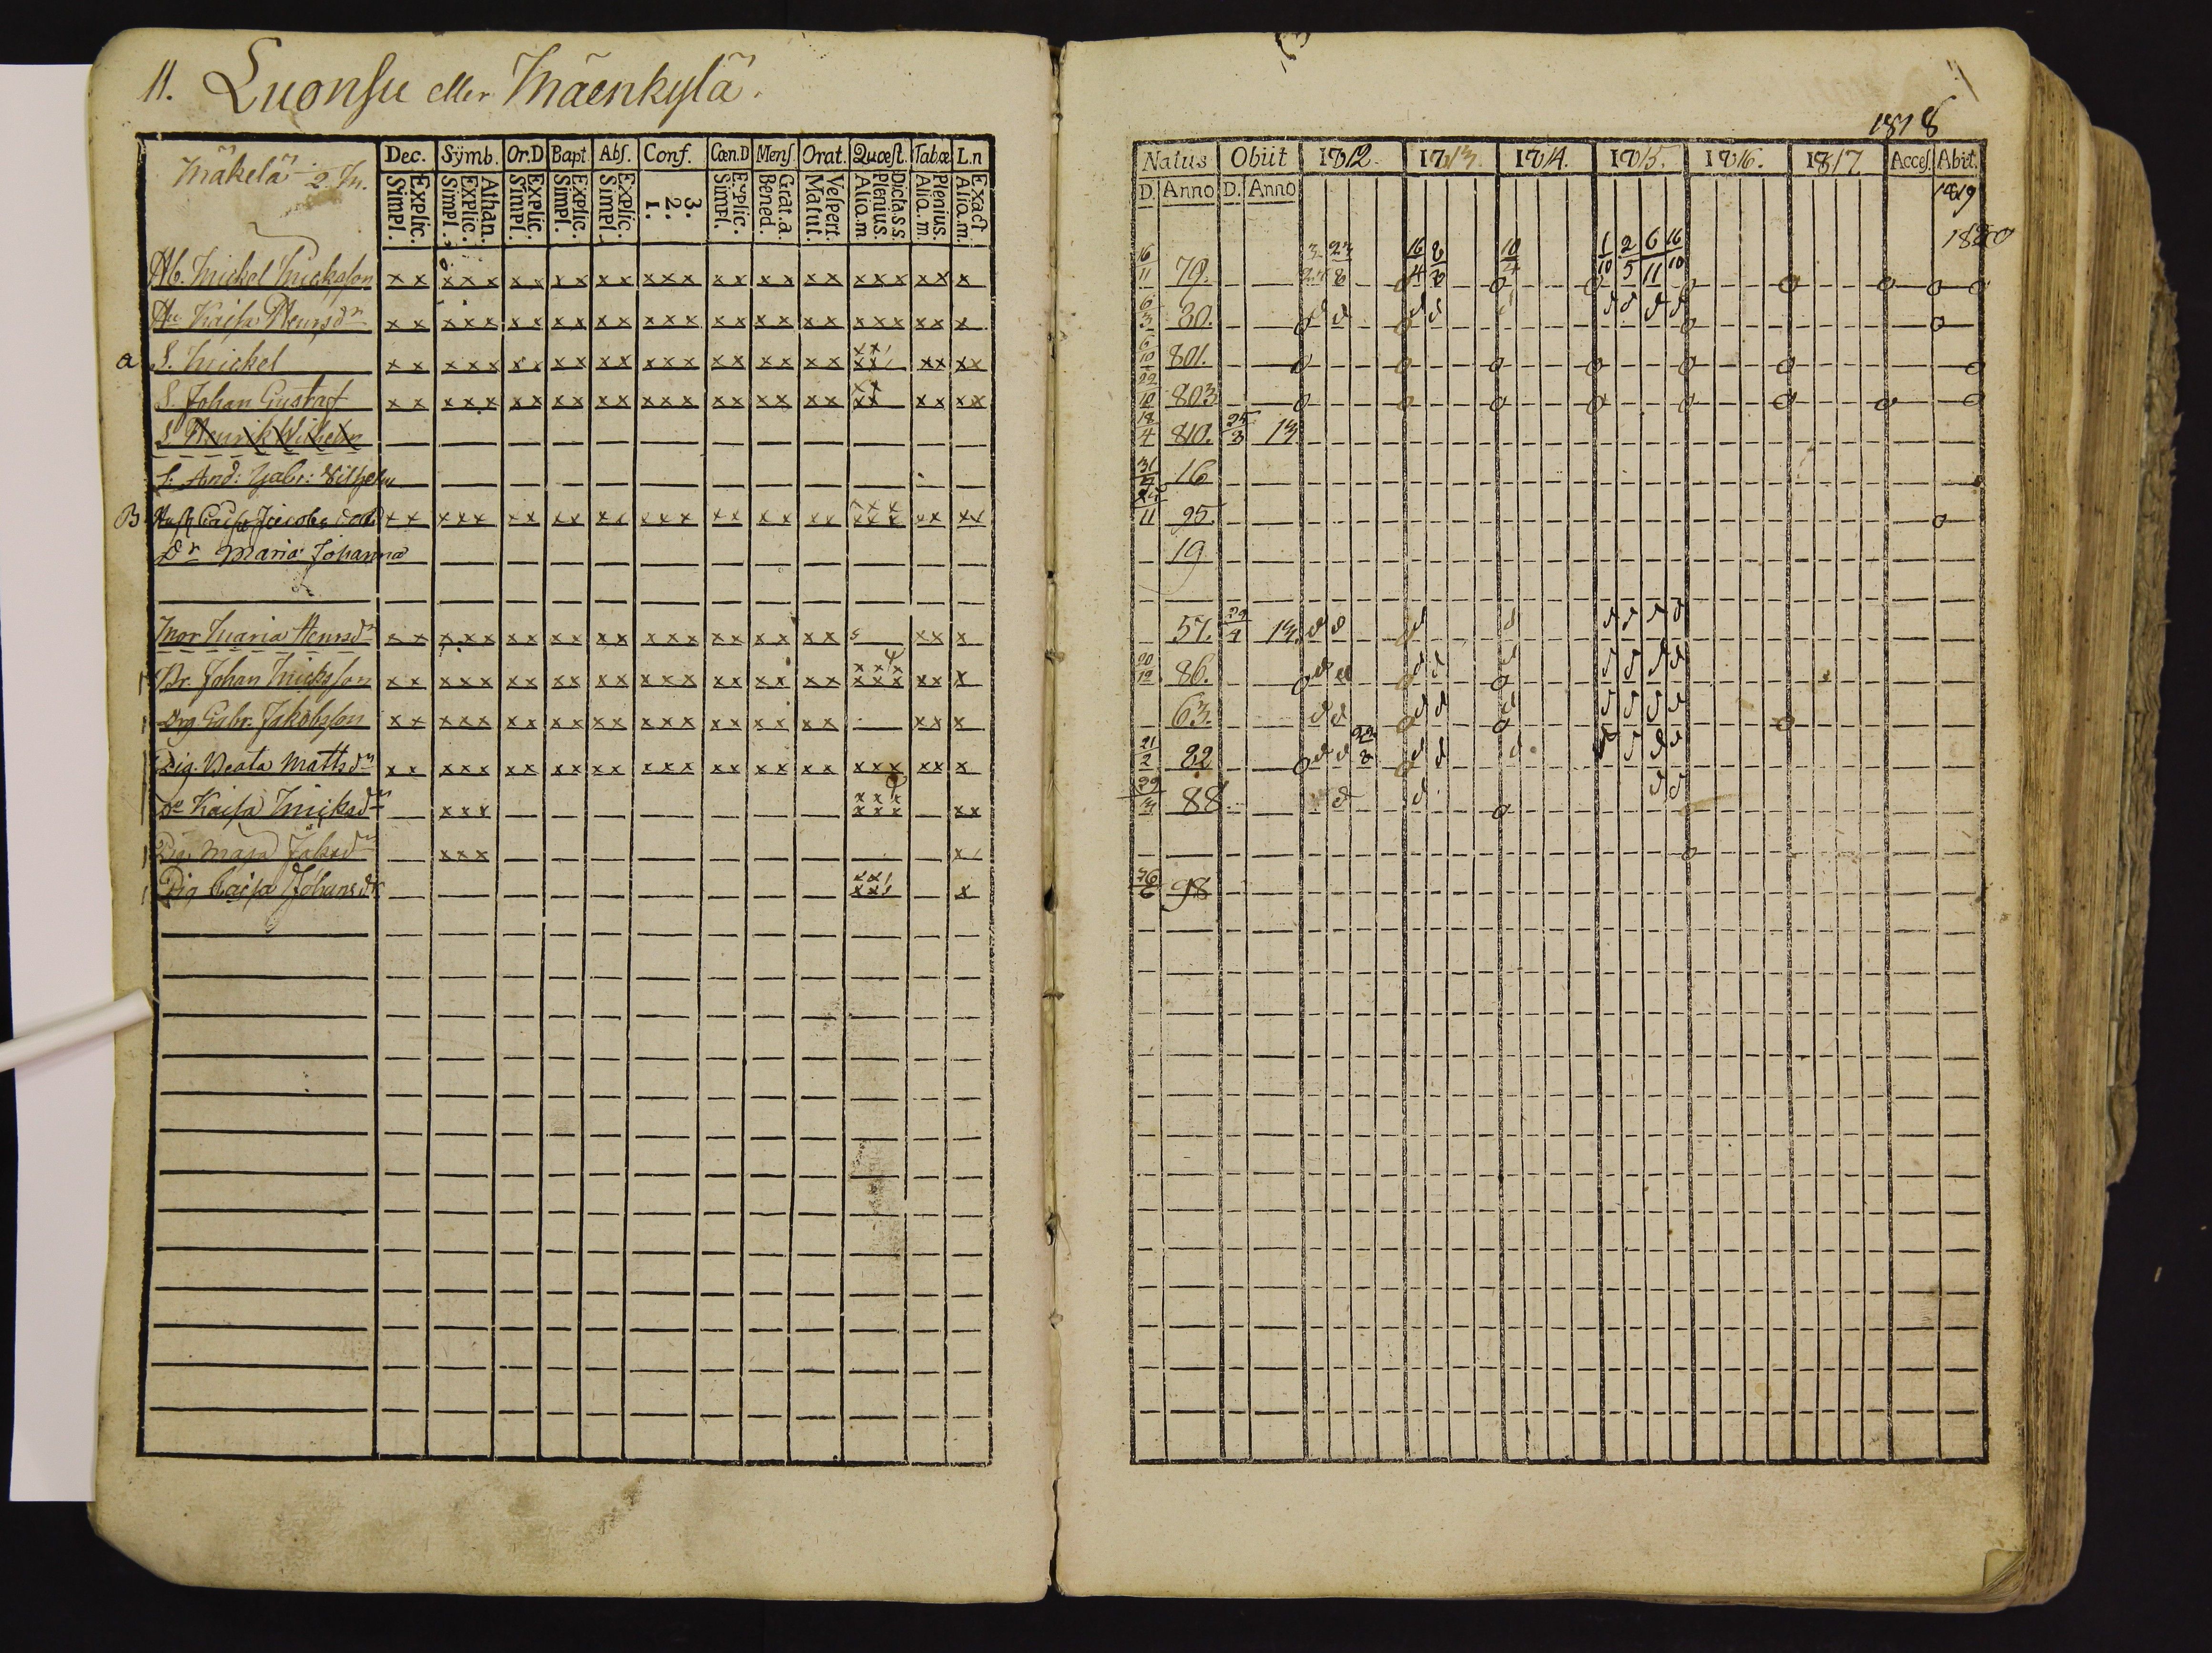 11. Luonsu eller Mäenkylä.
Mäkelä 2 M.
Dec. Symb. Or.D Bapt. Abſ. Conf. Cœn.D Menſ. Orat. Quœſt. Tabœ L.n
Simpl. Explic. Simpl. Explic. Athan. Simpl. Explic. Simpl. Explic. Simpl. Explic. 1. 2. 3. Simpl. Explic. Bened. Grat.a. Matut. Veſpert. Alia.m Plenius. Dicta.s.s. Alia.m. Plenius. Alia.m. Exact
Mickel Micksson x x x x x x x x x x x x x x x x x x x x x x x x x x x
Hu Kaisa Henrsdr x x x x x x x x x x x x x x x x x x x x x x x x x x x
a S. Mickel x x x x x x x x x x x x x x x x x x x x x x x x x x x x
S. Johan Gustaf x x x x x x x x x x x x x x x x x x x x x x x x x x x
S. Henrik Wilhelm
S. And: Gabr: Vilhelm
B Caisa Jacobs dotr x x x x x x x x x x x x x x x x x x x x x x x x x x x x
Dr Maria Johanna
Mor Maria Henrsdr x x x x x x x x x x x x x x x x x x x x s x x x
Br. Johan Micksson x x x x x x x x x x x x x x x x x x x x x x x x x x x
Drg Gabr. Jakobsson x x x x x x x x x x x x x x x x x x x x x x x
Pig. Beata Mattsdr x x x x x x x x x x x x x x x x x x x x x x x x x x
Kaisa Micksdr x x x x x x x x
Pig Maja Jakobsdr x x x x
Pig Caisa Johansdr x x x x
1818
Natus Obiit 1812 1813 1814. 1815. 1816. 1817 Acceſ. Abiit.
D. Anno D. Anno 1819
1820
16/11 79. 23/8 16/4 8/8 10/4 1/10 2/5 6/11 16/10
6/3 80.
6/10 801.
22/10 803
18/4 810. 25/3 13
31/7 16
11 95.
19
57. 29/4 13.
20/12 86.
63.
21/2 82 22/8
29/3 88
26/6 98